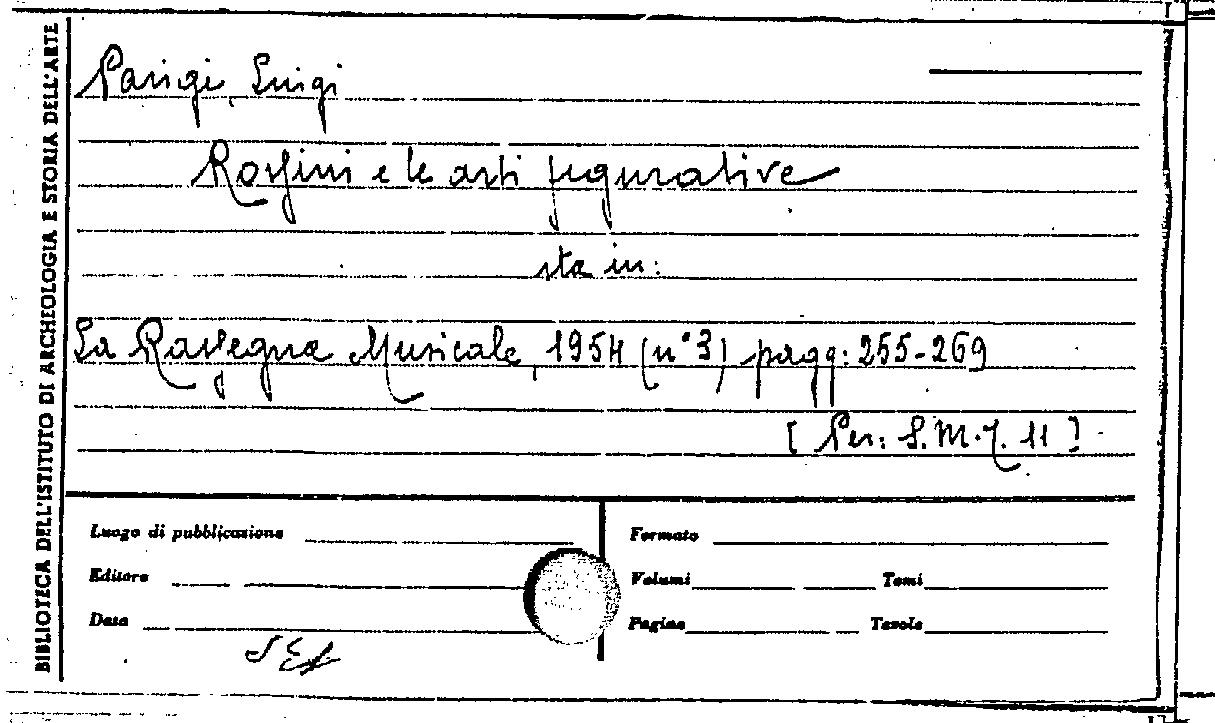 BIBLIOTECA DELL'ISTITUTO DI ARCHEOLOGIA E STORIA DELL'ARTE
Parigi, Luigi
Rossini e le arti figurative
sta in:
La Rassegna Musicale, 1954 (n° 3) pagg: 255-269
[Per: S.M.J. 11]
Luogo di pubblicazione
Formato
Editore
Volumi
Tomi
Data
Pagine
Tavole